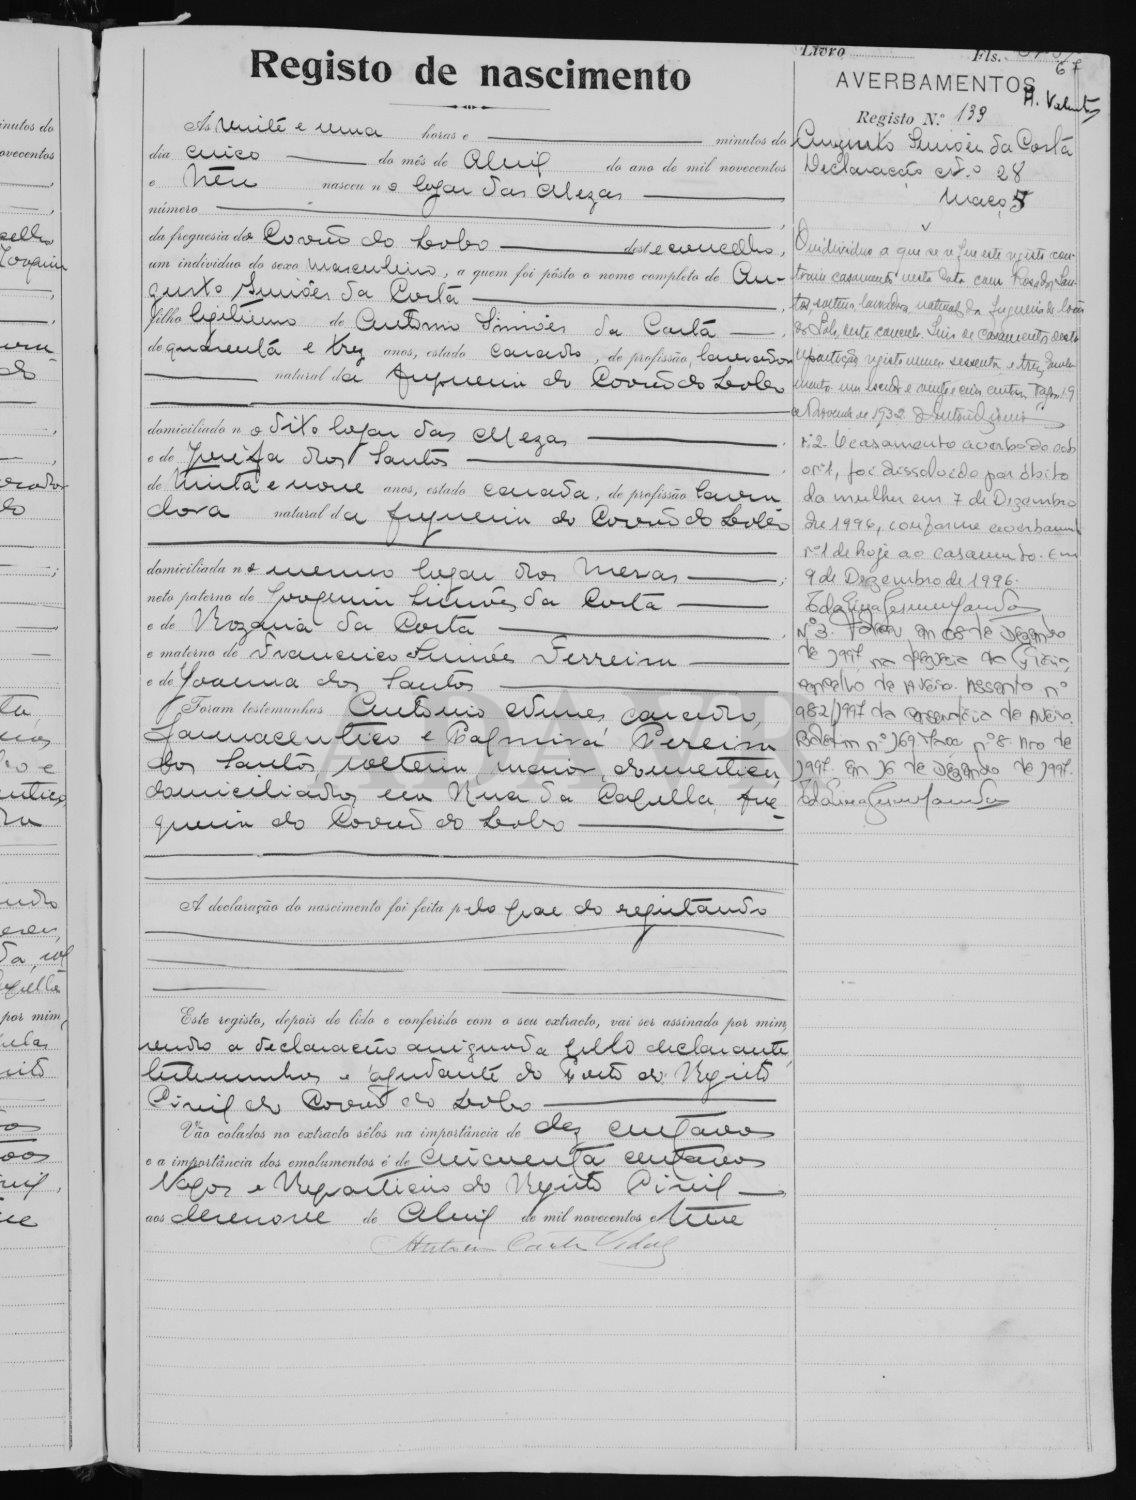 Registo de nascimento
Ás vinte e uma horas e minutos do
dia cinco do mês de Abril do ano de mil novecentos
e três nasceu no logar das Mezas
número
da freguesia do Covão do Lobo deste concelho,
um indivíduo do sexo masculino, a quem foi pôsto o nome completo de Au-
gusto Simões da Costa
filho legitimo de António Simões da Costa
de quarenta e trez anos, estado casado, de profissão lavrador
natural da freguesia do Covão do Lobo
domiciliado no dito logar das Mezas
e de Josefa dos Santos
de trinta e nove anos, estado casada, de profissão lavra
dora natural da freguesia do Covão do Lobo
domiciliada no mesmo logar das Mezas
neto paterno de Joaquim Simões da Costa
e de Rozaria da Costa
e materno de Francisco Simões Ferreira
e de Joanna dos Santos
Foram testemunhas António Nunes, casado,
farmaceutico e Palmira Pereira
dos Santos, solteira, maior, domestica,
domiciliados em Rua da Capella, fre-
guesia do Covão do Lobo
A declaração do nascimento foi feita pelo pae do registando
Este registo, depois de lido e conferido com o seu extracto, vai ser assinado por mim,
sendo a declaração assignada pelo declarante,
testemunhas e ajudante do Posto do Registo
Civil do Covão do Lobo
Vão colados no extracto sêlos na importância de dez centavos
e a importância dos emolumentos é de cincoenta centavos
Vagos e Repartição do Registo Civil
aos dezenove de Abril de mil novecentos e
Livro Fls. 67
AVERBAMENTOS
Registo N.º 139
Augusto Simões da Costa
Declaração N.º 28
Maço 5
O indivíduo a que se refere este registo con-
traiu casamento nesta data com Rosa dos San-
tos, solteira, lavradora, natural da freguesia do Covão
do Lobo, deste concelho. Livro de casamentos desta
repartição, registo numero sessenta e trez.
de Novembro de 1932
nº2. O casamento averbado sob
o nº1, foi dissolvido por óbito
da mulher em 7 de Dezembro
de 1996, conforme averbamento
nº1 de hoje ao casamento. Em
9 de Dezembro de 1996.
Nº3. Faleceu em 08 de Dezembro
de 1997 na freguesia da Glória,
concelho de Aveiro. Assento nº
982/1997 da Conservatória de Aveiro.
Boletim nº 169 Maço nº8. Ano de
1997. Em 16 de Dezembro de 1997.
ADAVR